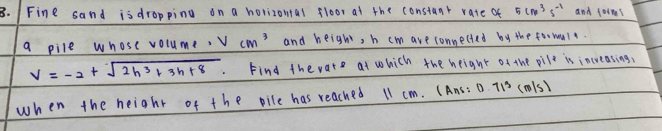 3. Fine sand is dropping on a horizontal floor at the constant rate of 5 cm³ s⁻¹ and forms
a pile whose volume, V cm³ and height, h cm are connected by the formula.
V = -2 + √2h³ + 3h + 8 . Find the rate at which the height of the pile is increasing,
when the height of the pile has reached 11 cm. (Ans: 0.713 cm/s)